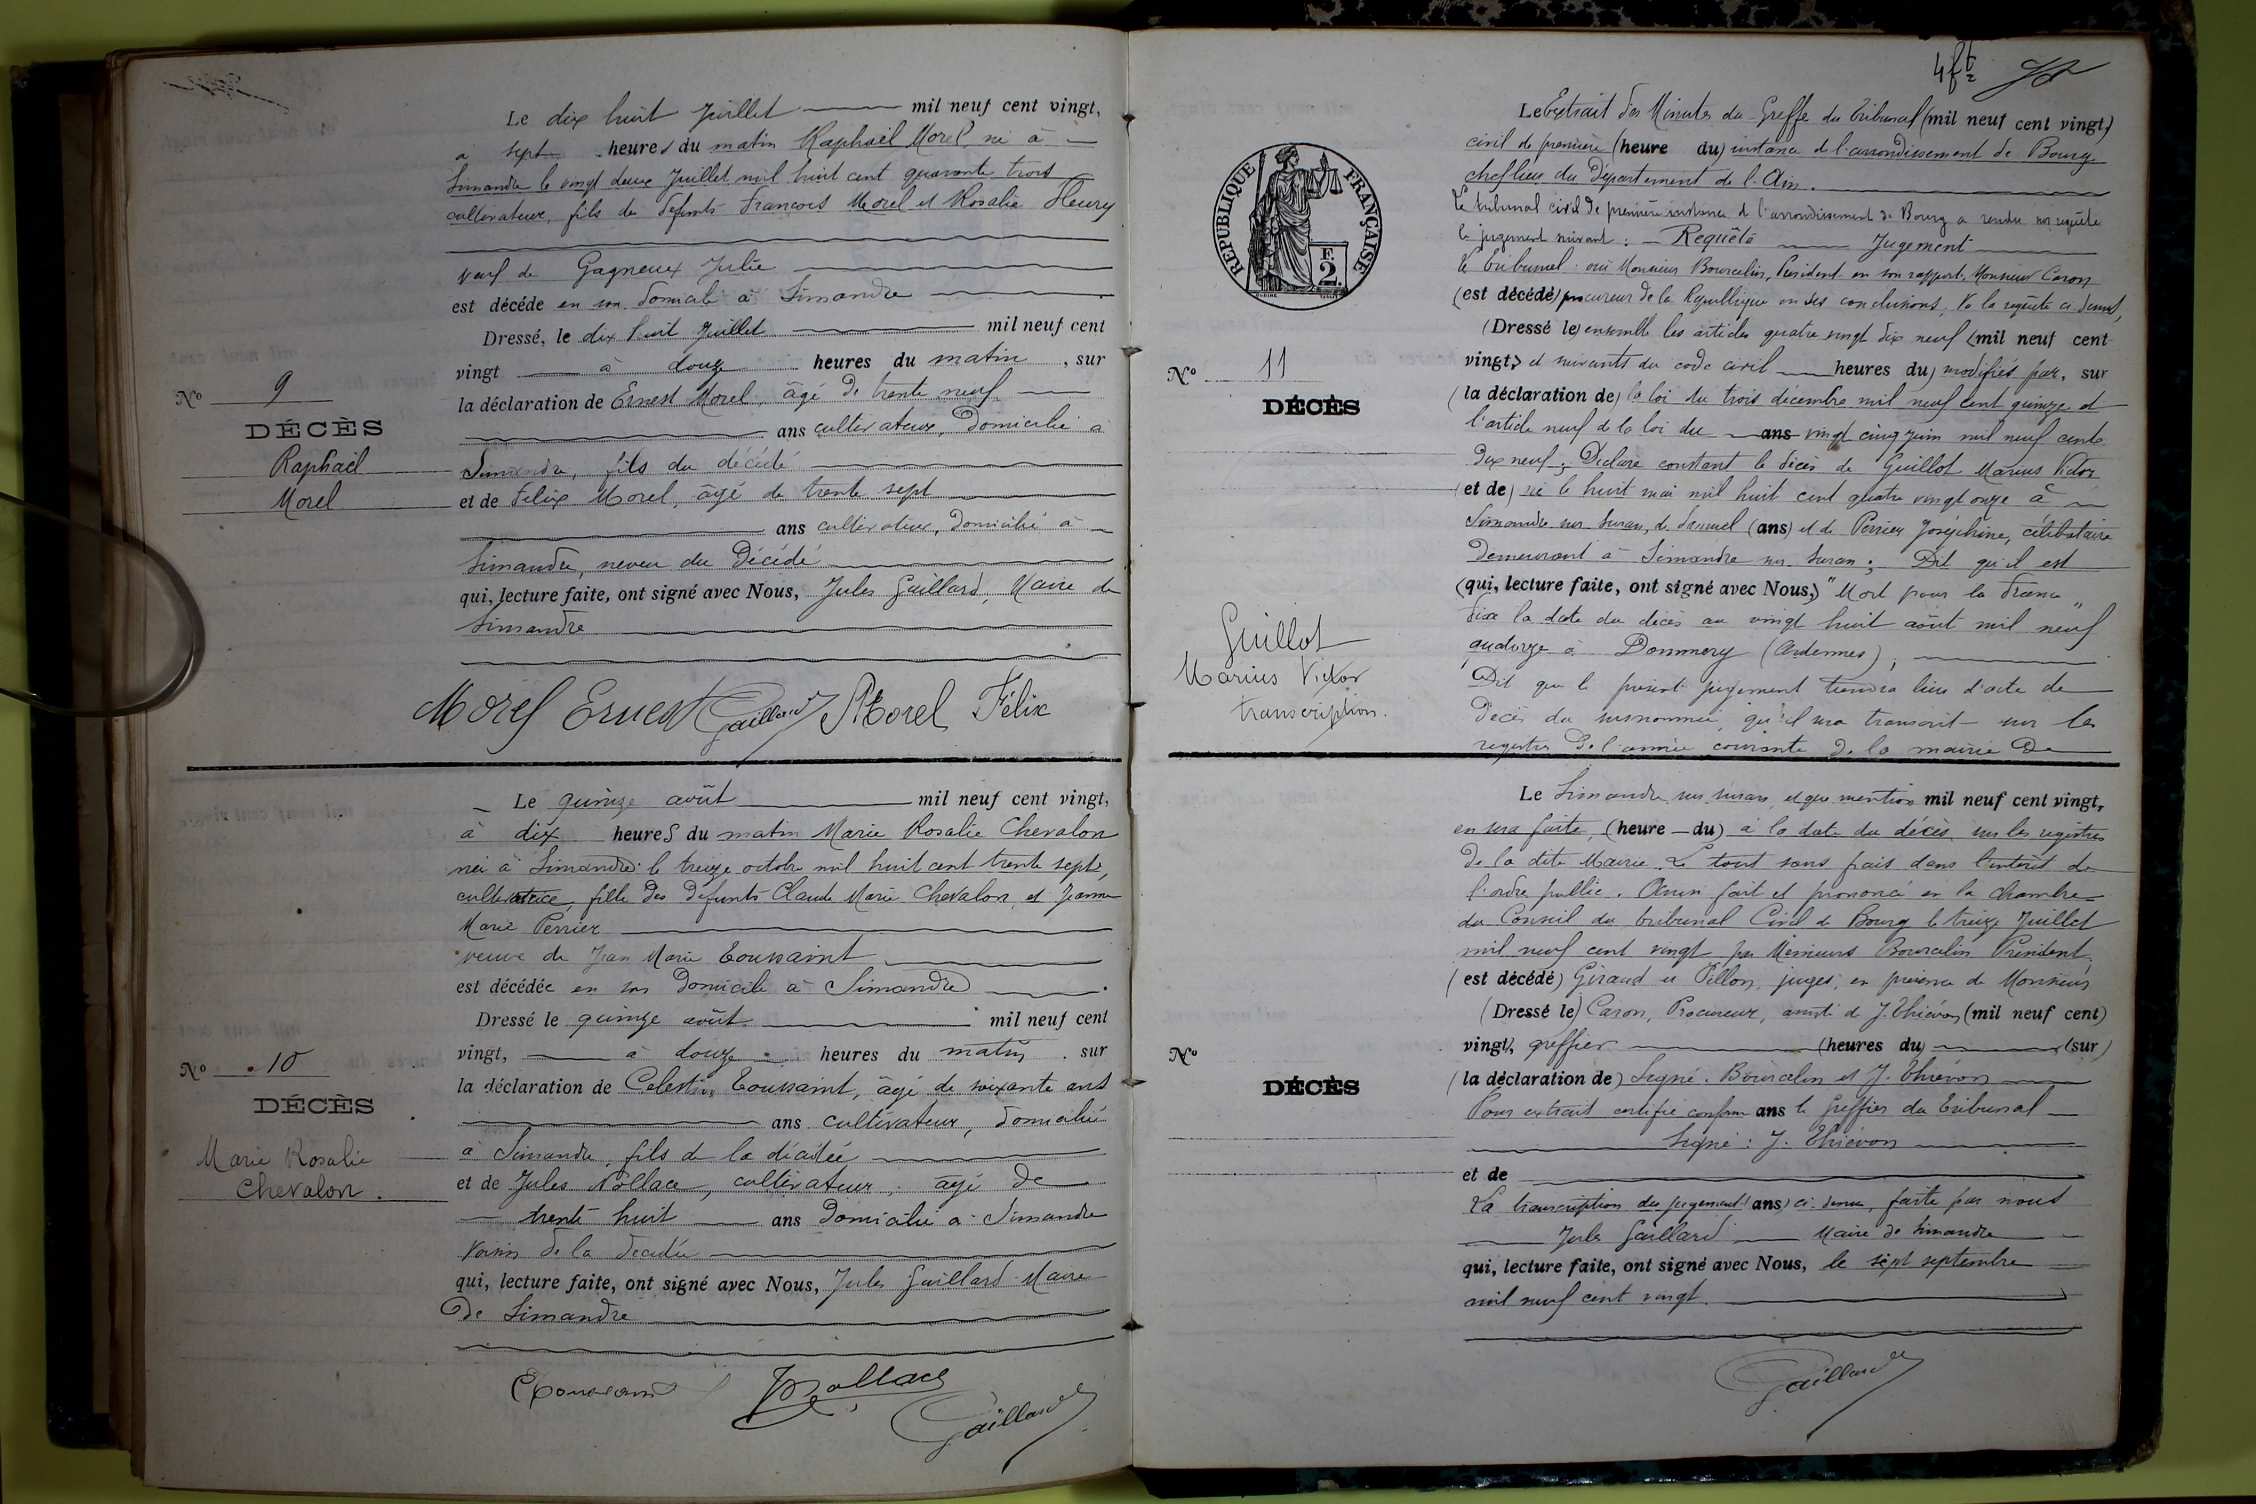 Le dix huit Juillet mil neuf cent vingt,
à sept heures du matin Raphaël Morel né à
Simandre le vingt deux Juillet mil huit cent quarante trois
cultivateur, fils de défunts François Morel et Rosalie Fleury
veuf de Gagneux Julie
est décédé en son domicile à Simandre
Dressé, le dix huit Juillet mil neuf cent
vingt à douze heures du matin, sur
la déclaration de Ernest Morel, âgé de trente neuf
ans cultivateur, domicilié à
Simandre, fils du décédé
et de Felix Morel, âgé de trente sept
ans cultivateur, domicilié à
Simandre, neveu du Décédé
qui, lecture faite, ont signé avec Nous, Jules Gaillard, Maire de
Simandre
Nº 9
DÉCÈS
Raphaël
Morel
Morel Ernest Gaillard Morel Félix
Le quinze août mil neuf cent vingt,
à dix heures du matin Marie Rosalie Chevalon
née à Simandre le treize octobre mil huit cent trente sept,
cultivatrice, fille des défunts Claude Marie Chevalon et Jeanne
Marie Perrier
veuve de Jean Marie Toussaint
est décédée en son domicile à Simandre
Dressé le quinze août mil neuf cent
vingt, à douze heures du matin, sur
la déclaration de Celestin Toussaint, âgé de soixante ans
ans cultivateur, domicilié
à Simandre, fils de la décédée
et de Jules Nollace, cultivateur, âgé de
trente huit ans domicilié à Simandre
voisin de la decedée
qui, lecture faite, ont signé avec Nous, Jules Gaillard Maire
De Simandre
Nº 10
DÉCÈS
Marie Rosalie
Chevalon.
Gaillard
RÉPUBLIQUE FRANÇAISE
F.
2.
Le Extrait des Minutes du Greffe du Tribunal (mil neuf cent vingt,)
civil de première (heure du) instance de l'arrondissement de Bourg
chef lieu du Département de l'Ain.
Le tribunal civil de première instance de l'arrondissement de Bourg a rendu sur requête
le jugement suivant : Requête Jugement
Le tribunal : ouï Monsieur Bourcelin, Président en son rapport, Monsieur Caron
(est décédé) procureur de la République en ses conclusions, Vu la requête ci-dessus,
(Dressé le) ensemble les articles quatre vingt dix neuf (mil neuf cent
vingt,) et suivants du code civil heures du) modifiés par, sur
(la déclaration de) la loi du trois décembre mil neuf cent quinze et
l'article neuf de la loi du ans vingt cinq juin mil neuf cent
dix neuf ; Déclare constant le décès de Guillot Marius Victor
(et de) né le huit mai mil huit cent quatre vingt onze à
Simandre sur Suran, de Samuel (ans) et de Perrier Joséphine, célibataire
Demeurant à Simandre sur Suran ; Dit qu'il est
(qui, lecture faite, ont signé avec Nous,) "Mort pour la France"
Fixe la date du décès au vingt huit août mil neuf
quatorze à Dommery (Ardennes) ;
Dit que le présent jugement tiendra lieu d'acte de
Décès du susnommé, qu'il sera transcrit sur les
registres de l'année courante de la mairie De
Nº 11
DÉCÈS
Guillot
Marius Victor
transcription.
Le Simandre sur Suran, et que mention mil neuf cent vingt,
en sera faite, (heure du) à la date du décès sur les registres
de la dite Mairie. Le tout sans frais dans l'intérêt de
l'ordre public. Ainsi fait et prononcé en la chambre
du Conseil du tribunal Civil de Bourg le treize Juillet
mil neuf cent vingt par Messieurs Bourcelin Président,
(est décédé) Giraud et Pillon, juges, en présence de Monsieur
(Dressé le) Caron, Procureur, assisté de J. Thiévon (mil neuf cent)
vingt), greffier (heures du) (sur)
(la déclaration de) Signé. Bourcelin et J. Thiévon
Pour extrait certifié conforme ans le Greffier du Tribunal
Signé : J. Thiévon
et de
La transcription du jugement (ans) ci-dessus, faite par nous
Jules Gaillard Maire de Simandre
qui, lecture faite, ont signé avec Nous, le sept septembre
mil neuf cent vingt.
Nº
DÉCÈS
Gaillard